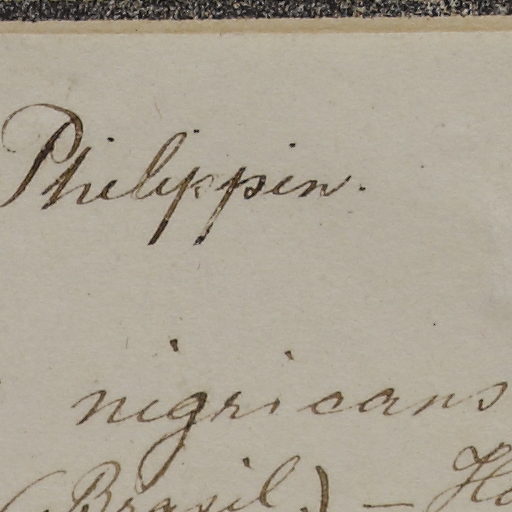 Philippin.
nigricans
(Brasil.) —